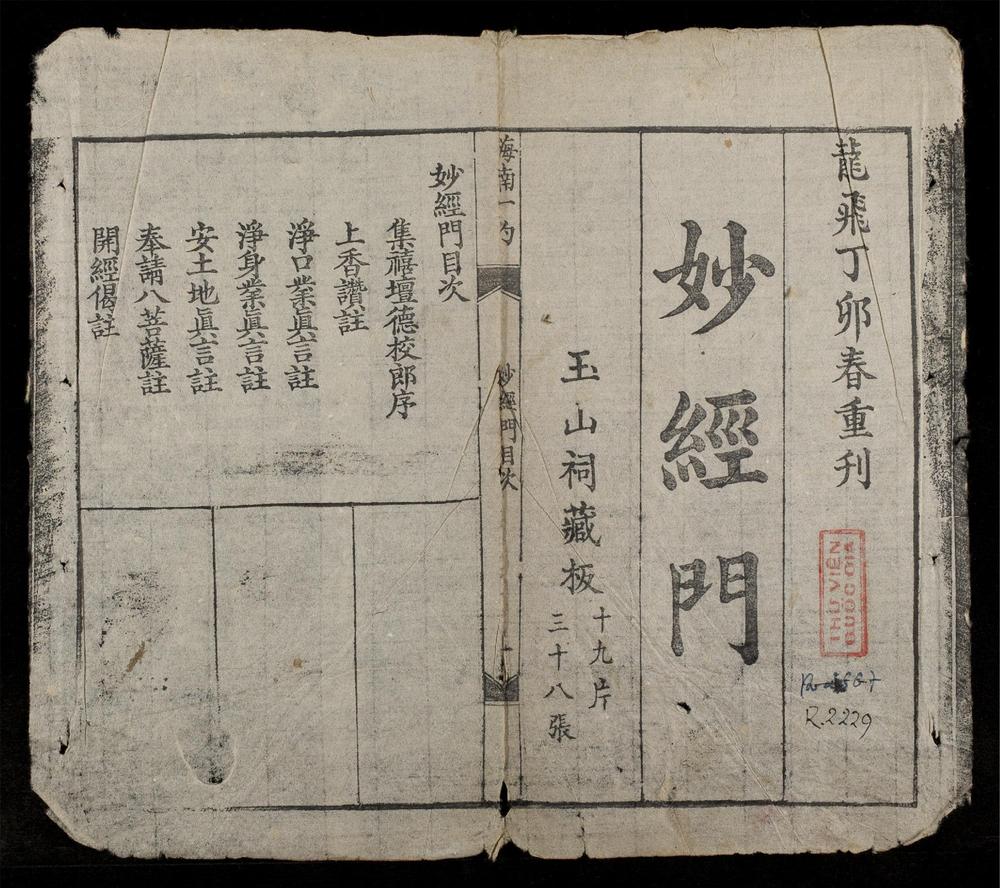 龍飛丁卯春重刋
妙經門
玉山祠藏板
十九片
三十八張
THƯ VIỆN
QUỐC GIA
R.2229
海南一勺
妙經門目次
一
妙經門目次
集禧壇德校郎序
上香讚註
淨口業眞言註
淨身業眞言註
安土地眞言註
奉請八菩薩註
開經偈註